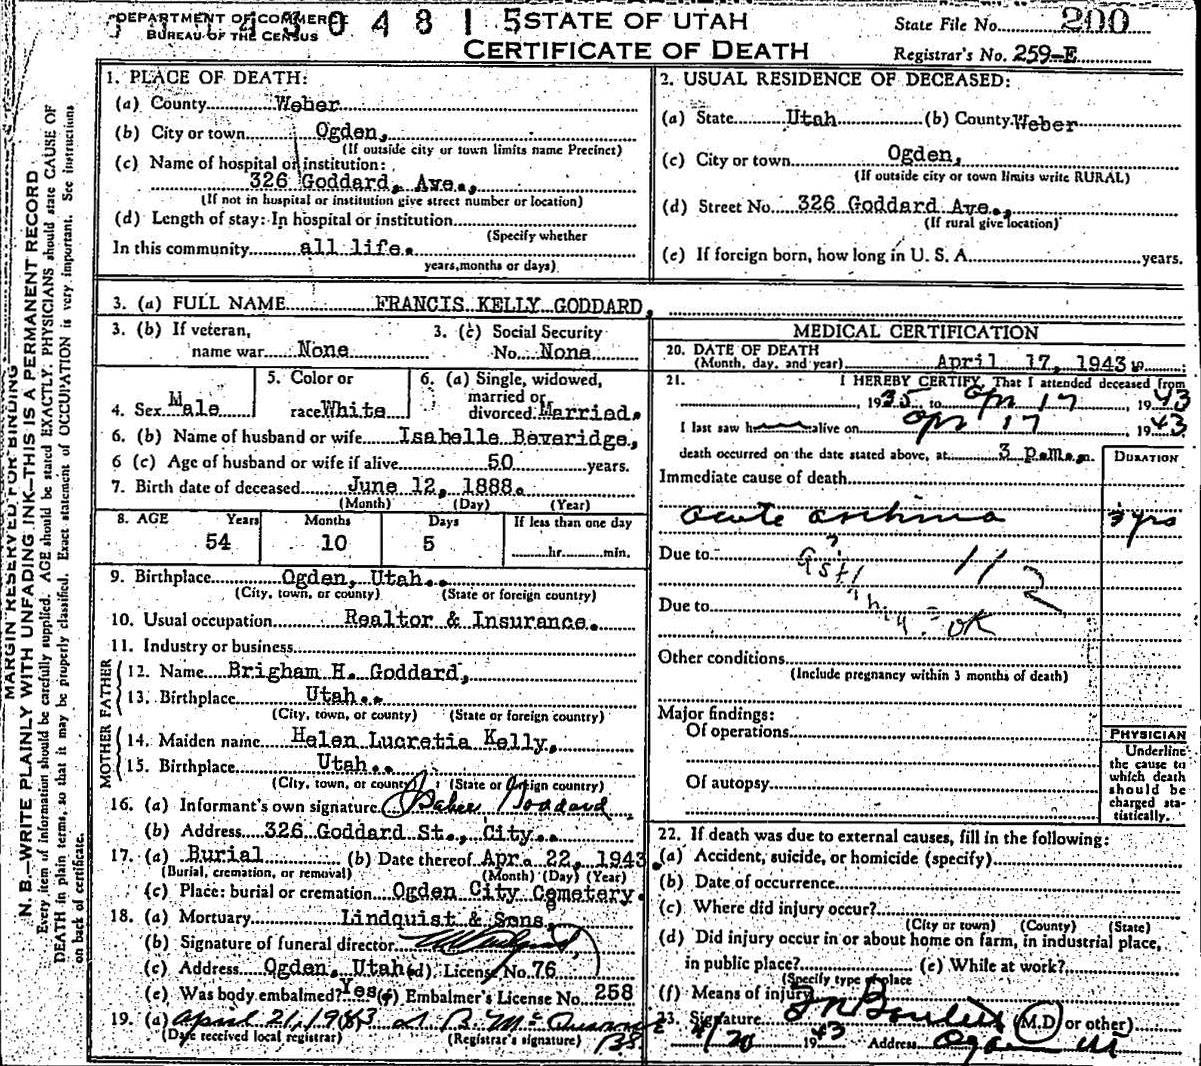 DEPARTMENT OF COMMERCE
BUREAU OF THE CENSUS
0 4 8 1 5
STATE OF UTAH
CERTIFICATE OF DEATH
State File No. 200
Registrar's No. 259-E
MARGIN RESERVED FOR BINDING
N. B.—WRITE PLAINLY WITH UNFADING INK—THIS IS A PERMANENT RECORD
Every item of information should be carefully supplied. AGE should be stated EXACTLY. PHYSICIANS should state CAUSE OF
DEATH in plain terms, so that it may be properly classified. Exact statement of OCCUPATION is very important. See instructions
on back of certificate.
1. PLACE OF DEATH:
(a) County Weber
(b) City or town Ogden,
(If outside city or town limits name Precinct)
(c) Name of hospital or institution:
326 Goddard, Ave.,
(If not in hospital or institution give street number or location)
(d) Length of stay: In hospital or institution
(Specify whether
In this community all life.
years, months or days)
2. USUAL RESIDENCE OF DECEASED:
(a) State Utah (b) County Weber
(c) City or town Ogden,
(If outside city or town limits write RURAL)
(d) Street No. 326 Goddard Ave.,
(If rural give location)
(e) If foreign born, how long in U. S. A. years.
3. (a) FULL NAME FRANCIS KELLY GODDARD,
3. (b) If veteran,
name war None
3. (c) Social Security
No. None
4. Sex Male
5. Color or
race White
6. (a) Single, widowed,
married or
divorced Married.
6. (b) Name of husband or wife Isabelle Beveridge,
6 (c) Age of husband or wife if alive 50 years.
7. Birth date of deceased June 12, 1888.
(Month) (Day) (Year)
8. AGE Years Months Days If less than one day
54 10 5 hr. min.
9. Birthplace Ogden, Utah..
(City, town, or county) (State or foreign country)
10. Usual occupation Realtor & Insurance.
11. Industry or business
FATHER
12. Name Brigham H. Goddard,
13. Birthplace Utah..
(City, town, or county) (State or foreign country)
MOTHER
14. Maiden name Helen Lucretia Kelly,
15. Birthplace Utah..
(City, town, or county) (State or foreign country)
16. (a) Informant's own signature Goddard
(b) Address 326 Goddard St., City..
17. (a) Burial (b) Date thereof Apr. 22, 1943.
(Burial, cremation, or removal) (Month) (Day) (Year)
(c) Place: burial or cremation Ogden City Cemetery.
18. (a) Mortuary Lindquist & Sons,
(b) Signature of funeral director
(c) Address Ogden, Utah (d) License No. 76
(e) Was body embalmed? Yes (f) Embalmer's License No. 258
19. (a) April 21, 1943
(Date received local registrar) (Registrar's signature)
MEDICAL CERTIFICATION
20. DATE OF DEATH
(Month, day, and year) April 17, 1943 19
21. I HEREBY CERTIFY, That I attended deceased from
1935 to Apr 17 1943
I last saw h alive on Apr 17 1943
death occurred on the date stated above, at 3 p.m. m.
DURATION
Immediate cause of death
acute asthma yrs
Due to
Due to
OK
Other conditions
(Include pregnancy within 3 months of death)
Major findings:
Of operations
Of autopsy
PHYSICIAN
Underline
the cause to
which death
should be
charged sta-
tistically.
22. If death was due to external causes, fill in the following:
(a) Accident, suicide, or homicide (specify)
(b) Date of occurrence
(c) Where did injury occur?
(City or town) (County) (State)
(d) Did injury occur in or about home on farm, in industrial place,
in public place? (e) While at work?
(Specify type place
(f) Means of injury
23. Signature (M.D or other)
4/20 1943 Address Ogden